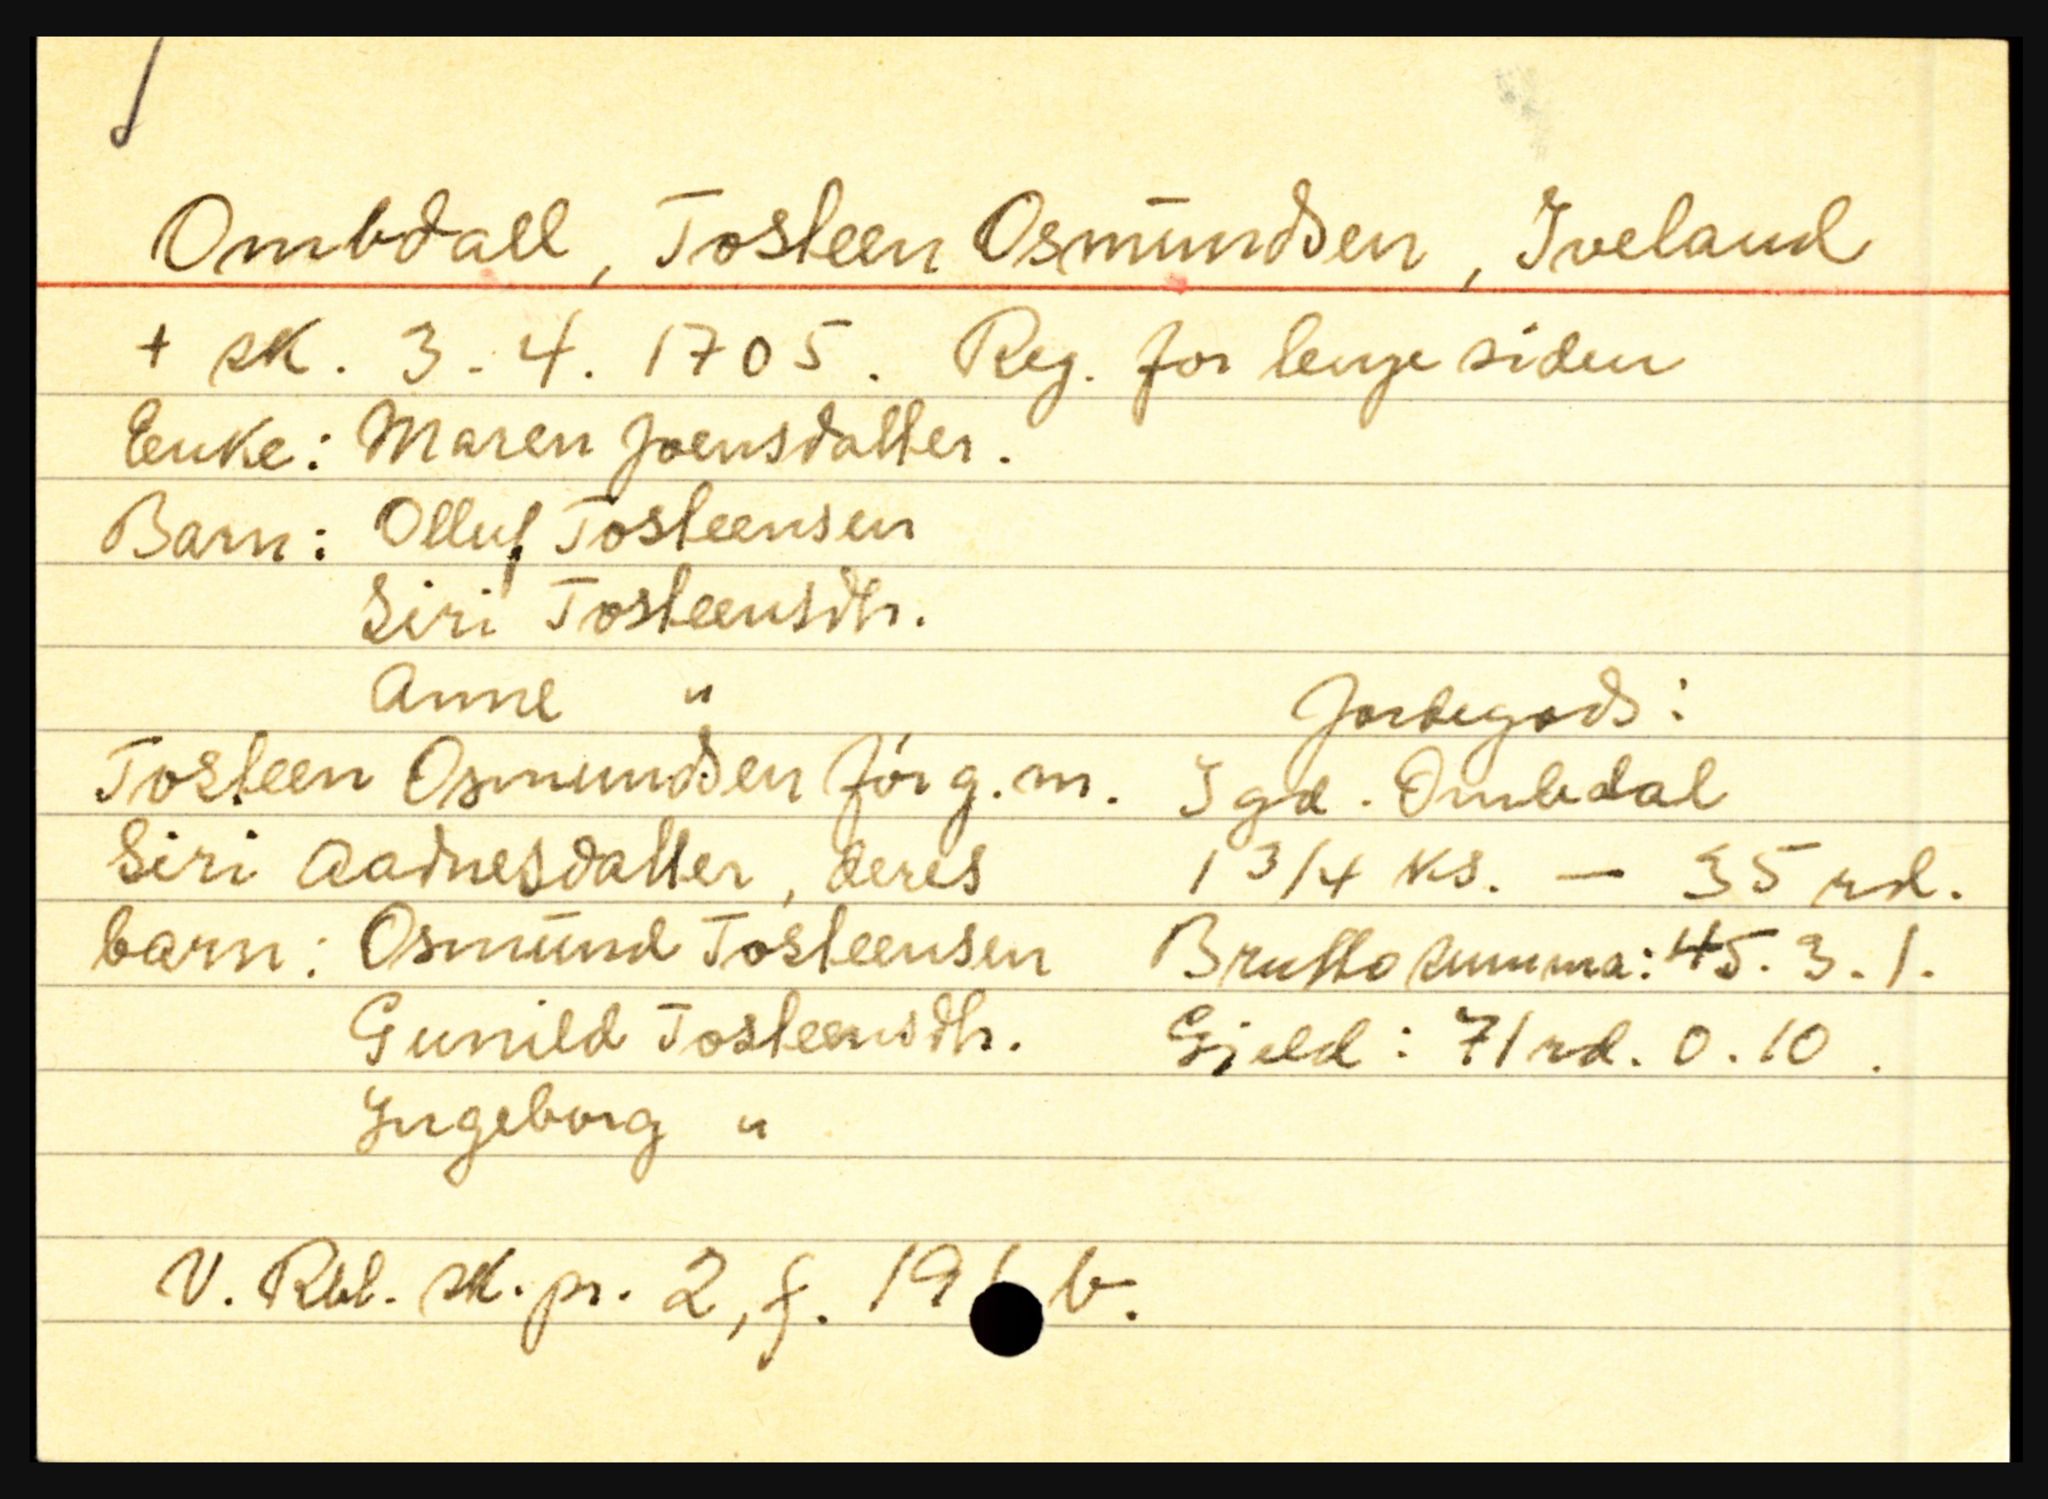 Ombdall, Tosteen Osmundsen, Iveland
+ sk. 3.4.1705. Reg. for lenge siden
Enke: Maren Joensdatter.
Barn: Olluf Tosteensen
Siri Tosteensdtr.
Anne "
Tosteen Osmundsen för g. m.
Siri Aadnesdatter, deres
barn: Osmund Tosteensen
Gunild Tosteensdtr.
Ingeborg "
Jordegods:
I gd. Ombdal
1 3/4 ks. — 35 rd.
Brutto summa: 45.3.1.
Gjeld: 71 rd. 0.10.
V. Rbl. sk. pr. 2, f. b.